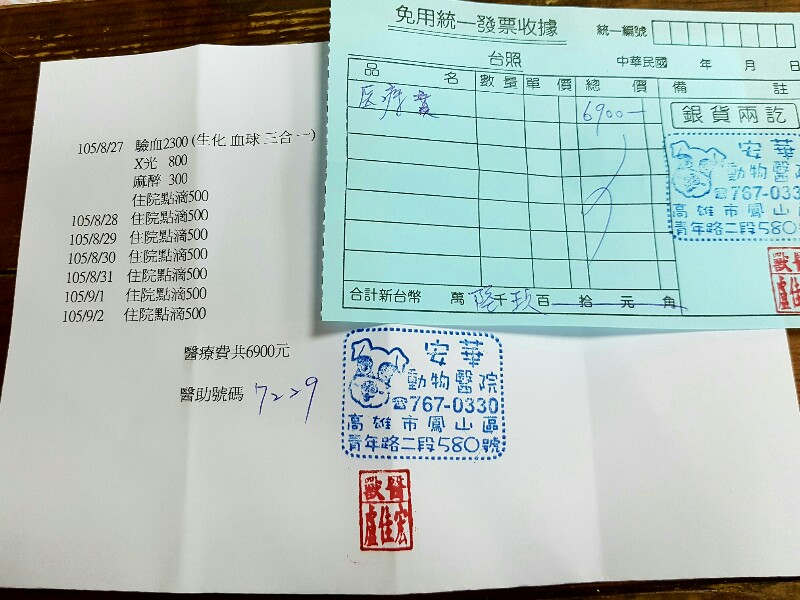 免用統一發票收據
統一編號
台照
中華民國 年 月 日
品名 數量 單價 總價 備註
医療費 6900—
銀貨兩訖
安華
動物醫院
☎767-033
高雄市鳳山區
青年路二段580號
獸醫
盧佳宏
合計新台幣 萬 陸千玖百 拾 元 角
105/8/27 驗血2300 (生化 血球 三合一)
X光 800
麻醉 300
住院點滴500
105/8/28 住院點滴500
105/8/29 住院點滴500
105/8/30 住院點滴500
105/8/31 住院點滴500
105/9/1 住院點滴500
105/9/2 住院點滴500
醫療費共6900元
醫助號碼 7229
安華
動物醫院
☎767-0330
高雄市鳳山區
青年路二段580號
獸醫
盧佳宏